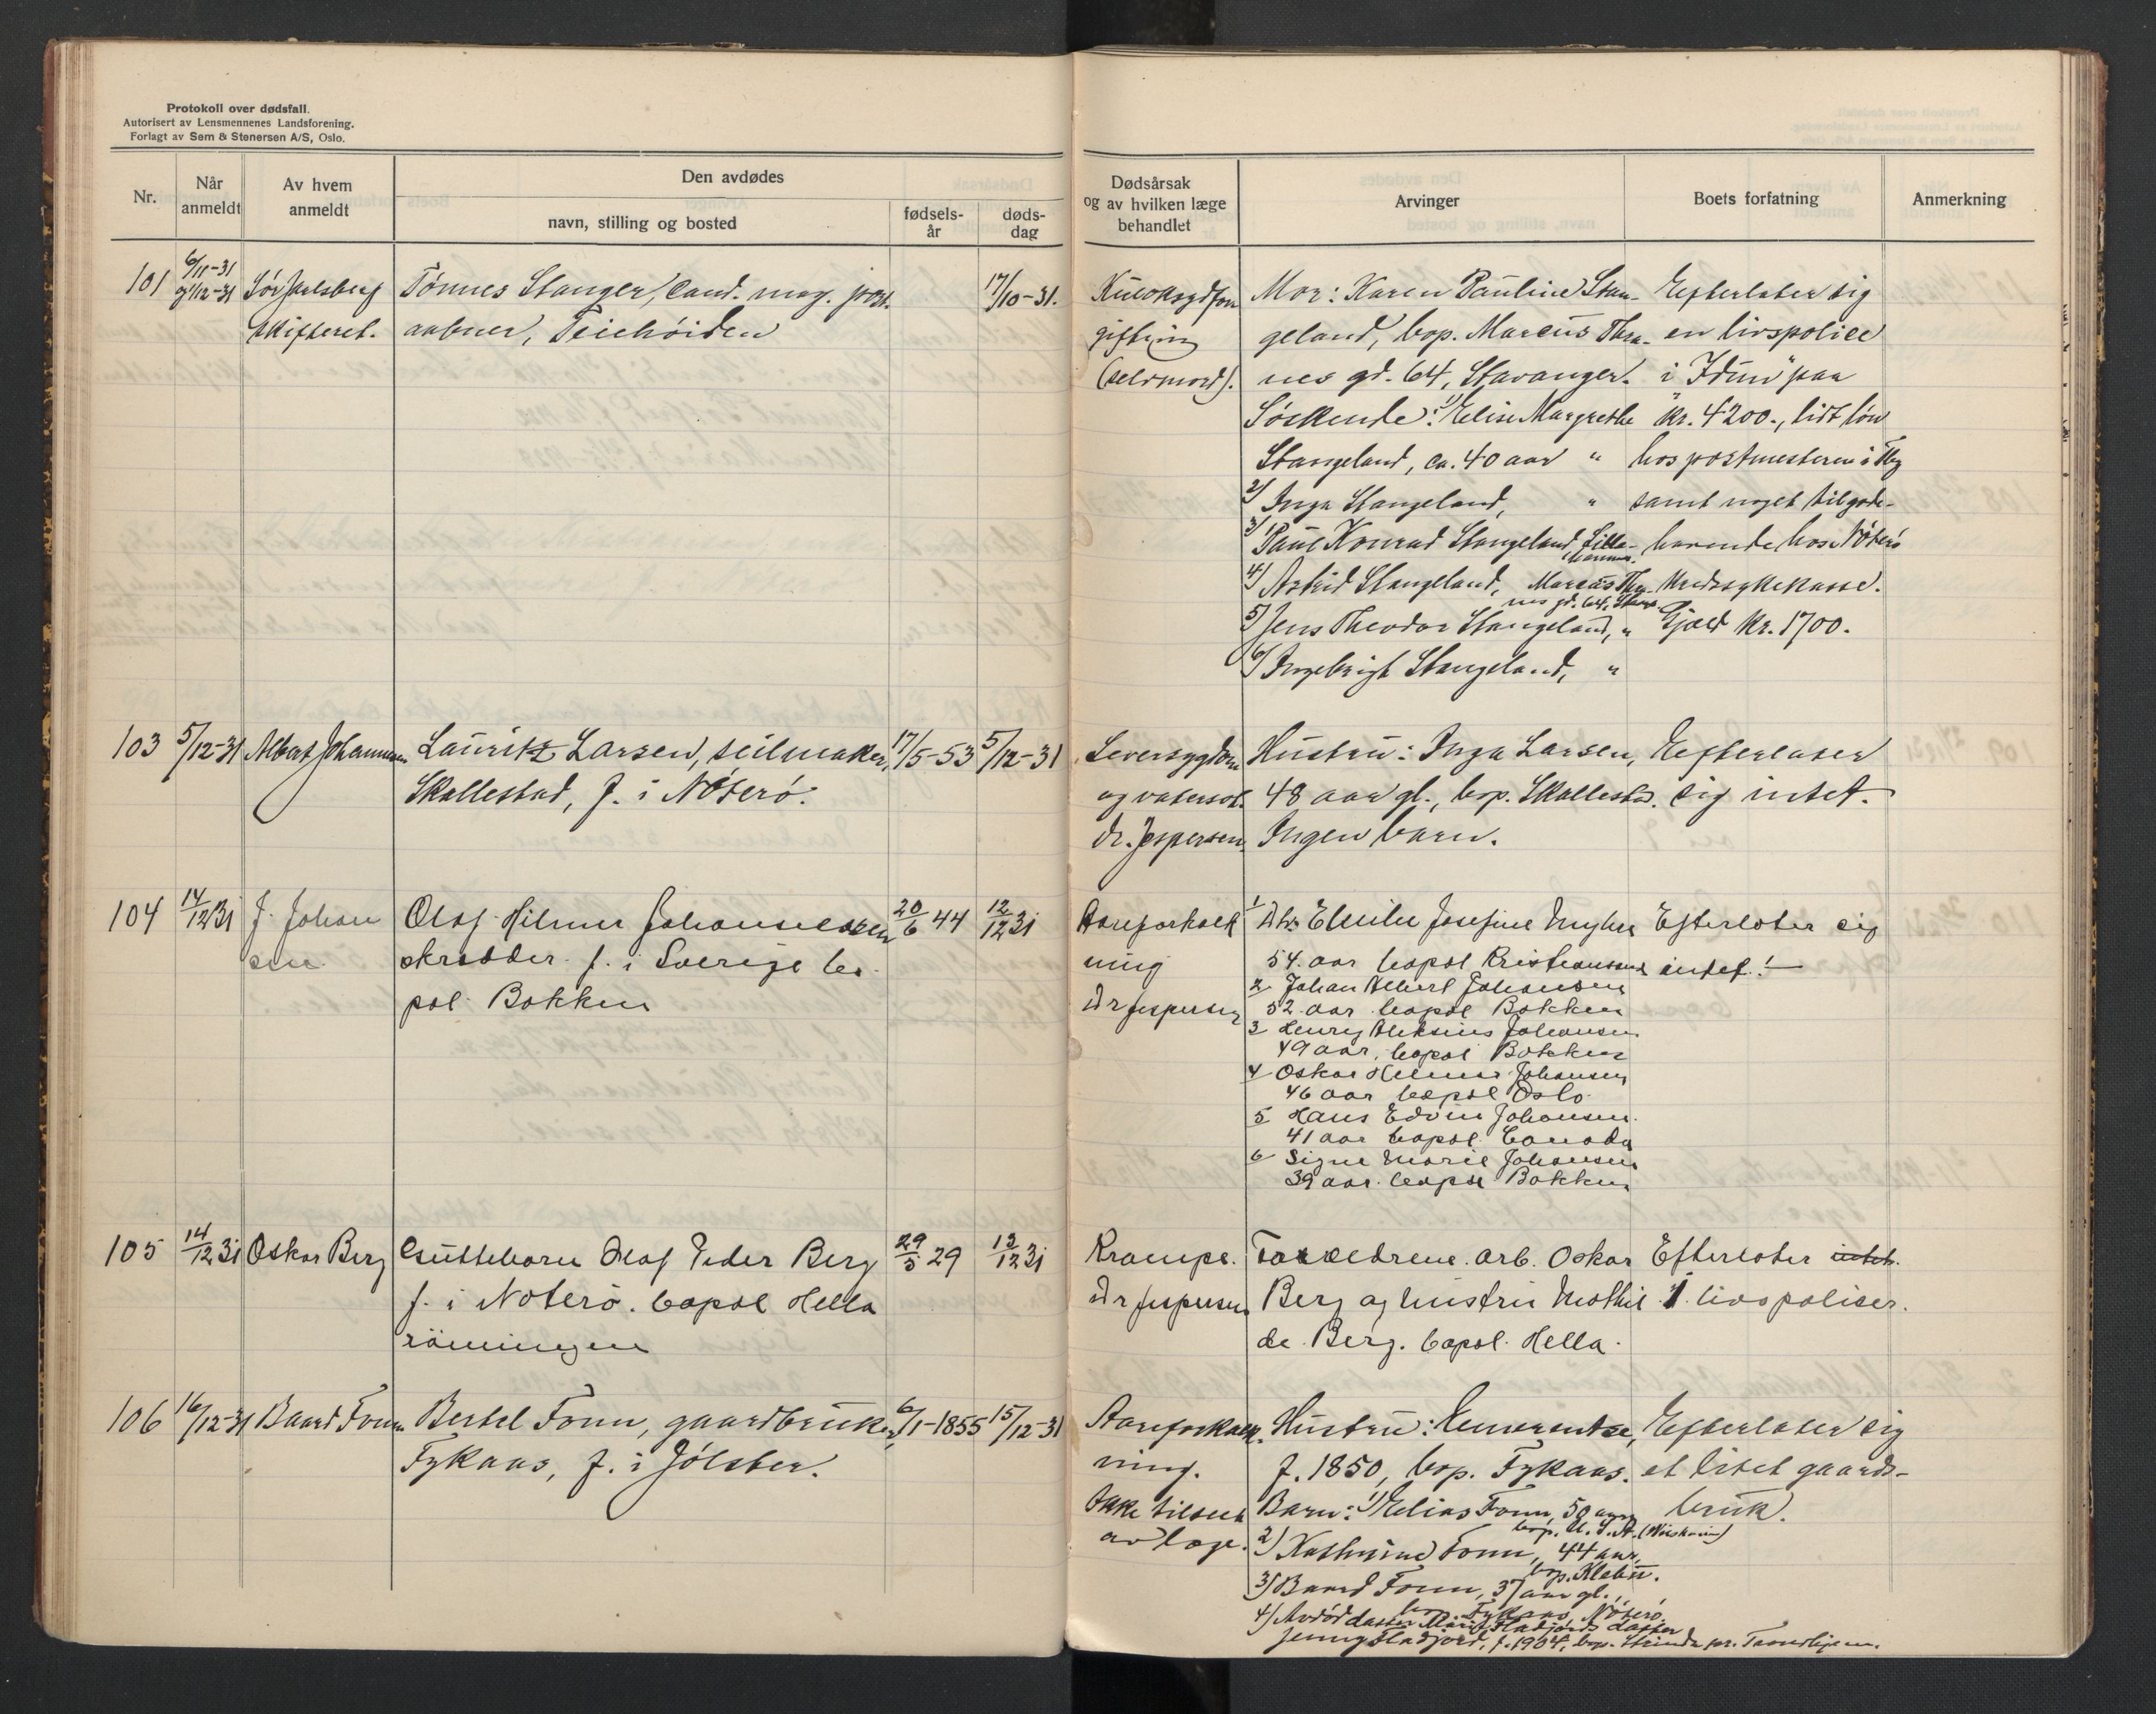 Protokoll over dødsfall.
Autorisert av Lensmennenes Landsforening.
Forlagt av Sem & Stenersen A/S, Oslo.
Nr.
Når anmeldt
Av hvem anmeldt
Den avdødes
navn, stilling og bosted
fødsels-år
døds-dag
Dødsårsak og av hvilken læge behandlet
Arvinger
Boets forfatning
Anmerkning
101
6/11-31
og 1/12-31
Sør Jarlsberg
skifteret.
Tønnes Stanger, cand. mag. post-
aabner, Teiehøiden
17/10-31.
Kuloksydfor
giftning
(selvmord).
Mor: Karen Pauline Stan-
geland, bop. Marcus Thra-
nes gd. 64, Stavanger.
Søskende: 1) Elise Margrethe
Stangeland, ca. 40 aar "
2) Inga Stangeland, "
3) Paul Konrad Stangeland, Lille-
hammer.
4) Astrid Stangeland, Marcus Thra-
nes gd. 64, Stavg.
5) Jens Theodor Stangeland, "
6) Ingebrigt Stangeland, "
Efterlater sig
en livspolice
i "Idun" paa
kr. 4200., lidt løn
hos postmesteren i Tbg
samt noget tilgode-
havende hos Nøterø
kredssykekasse.
Gjæld kr. 1700.
103
5/12-31
Albert Johannesen
Lauritz Larsen, seilmaker,
Skallestad, f. i Nøterø.
17/5-53
5/12-31
Leversygdom
og vatersot.
Dr. Jespersen
Hustru: Inga Larsen,
48 aar gl., bop. Skallestad.
Ingen barn.
Efterlater
sig intet.
104
14/12 31
J. Johan
sen
Olaf Hilmer Johannesen
skrædder. f. i Sverige bo-
pæl Bakken
20/6 44
12/12 31
Aareforkalk
ning
Dr Jespersen
1 Dtr Emilie Josefine Myhre
54. aar bopæl Kristiansand
2 Johan Albert Johansen
52 aar bopæl Bakken
3 Henry Aleksius Johansen
49 aar, bopæl Bakken
4 Oskar Helmer Johansen
46 aar bopæl Oslo
5 Hans Edvin Johansen.
41 aar bopæl Canada
6 Signe Marie Johansen
39 aar. bopæl Bakken
Efterlater sig
intet.!—
105
14/12 31
Oskar Berg
Guttebarn Olaf Peder Berg
f. i Nøterø. bopæl Hella
29/5 29
13/12 31
Krampe.
Dr Jespersen
Forældrene. arb. Oskar
Berg og hustru Mathil
de Berg. bopæl. Hella.
Efterlater intet.
1 livspoliser.
106
16/12-31
Baard Fonn
Bertel Fonn, gaardbruker,
Fykaas, f. i Jølster.
6/1-1855
15/12-31
Aareforkalk-
ning.
Ikke tilseet
av læge.
Hustru:
f. 1850, bop. Fykaas.
Barn: 1) Elias Fonn, 50 aar,
bop. U.S.A.
2) Kathrine Fonn, 44 aar,
bop. Klæbu.
3) Baard Fonn, 37 aar gl.,
bop. Fykaas, Nøterø.
4) Avdød datter Marit Fladjords datter
Jenny Fladjord, f. 1904, bop. Strinda pr. Trondhjem.
Efterlater sig
et litet gaards-
bruk.